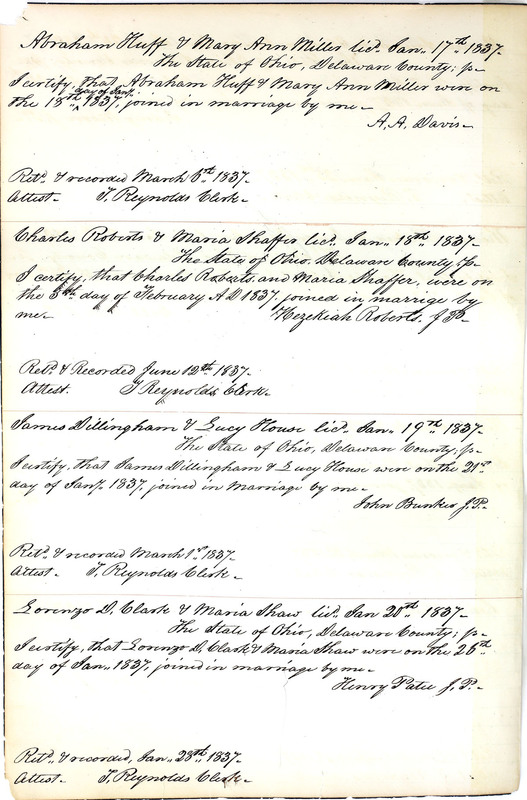 Abraham Huff & Mary Ann Miller licd. Jan. 17th 1837.
The State of Ohio, Delaware County; ss-
I certify, that Abraham Huff & Mary Ann Miller were on
day of Jany.
the 18th 1837, joined in marriage by me-
A. A. Davis-
Retd. & recorded March 6th 1837-
Attest. T. Reynolds Clerk-
Charles Roberts & Maria Shaffer licd. Jan. 18th 1837-
The State of Ohio, Delaware County ss-
I certify, that Charles Roberts and Maria Shaffer, were on
the 5th day of February A D 1837, joined in marrige by
me- Hezekiah Roberts. J P.-
Retd. & Recorded June 12th 1837.
Attest. T Reynolds Clerk-
James Dillingham & Lucy House licd. Jan. 19th 1837-
The State of Ohio, Delaware County; ss-
I certify, that James Dillingham & Lucy House were on the 21st
day of Jany. 1837, joined in marriage by me-
John Bunker J. P.-
Retd. & recorded March 1st 1837-
Attest- T. Reynolds Clerk-
Lorenzo D. Clark & Maria Shaw licd. Jan 20th 1837-
The State of Ohio, Delaware County; ss-
I certify, that Lorenzo D. Clark & Maria Shaw were on the 26th
day of Jan. 1837, joined in marriage by me-
Henry Patee J. P.-
Retd. & recorded, Jan. 28th 1837-
Attest- T. Reynolds Clerk-